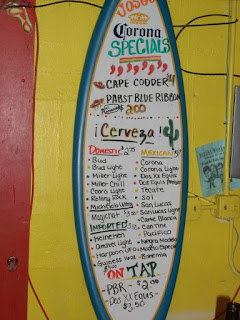 JOSE'S
Corona
SPECIALS
CAPE CODDER 4
PABST BLUE RIBBON
200
¡Cerveza!
DOMESTIC MEXICAN
Bud
Bud Light
Miller Light
Miller Chill
Coors Light
Rolling Rock
Michelob Ultra
Magic Hat
IMPORTED
Heineken
Amstel Light
Harpoon
Guiness
Corona
Corona Light
Dos XX Equis
Tecate
Sol
San Lucas
San Lucas Light
Carne Blanca
Cantine
Pacifico
Negra Modelo
Modelo Especial
Bohemia
ON TAP
PBR - $2.00
Dos XX Equis
$3.50